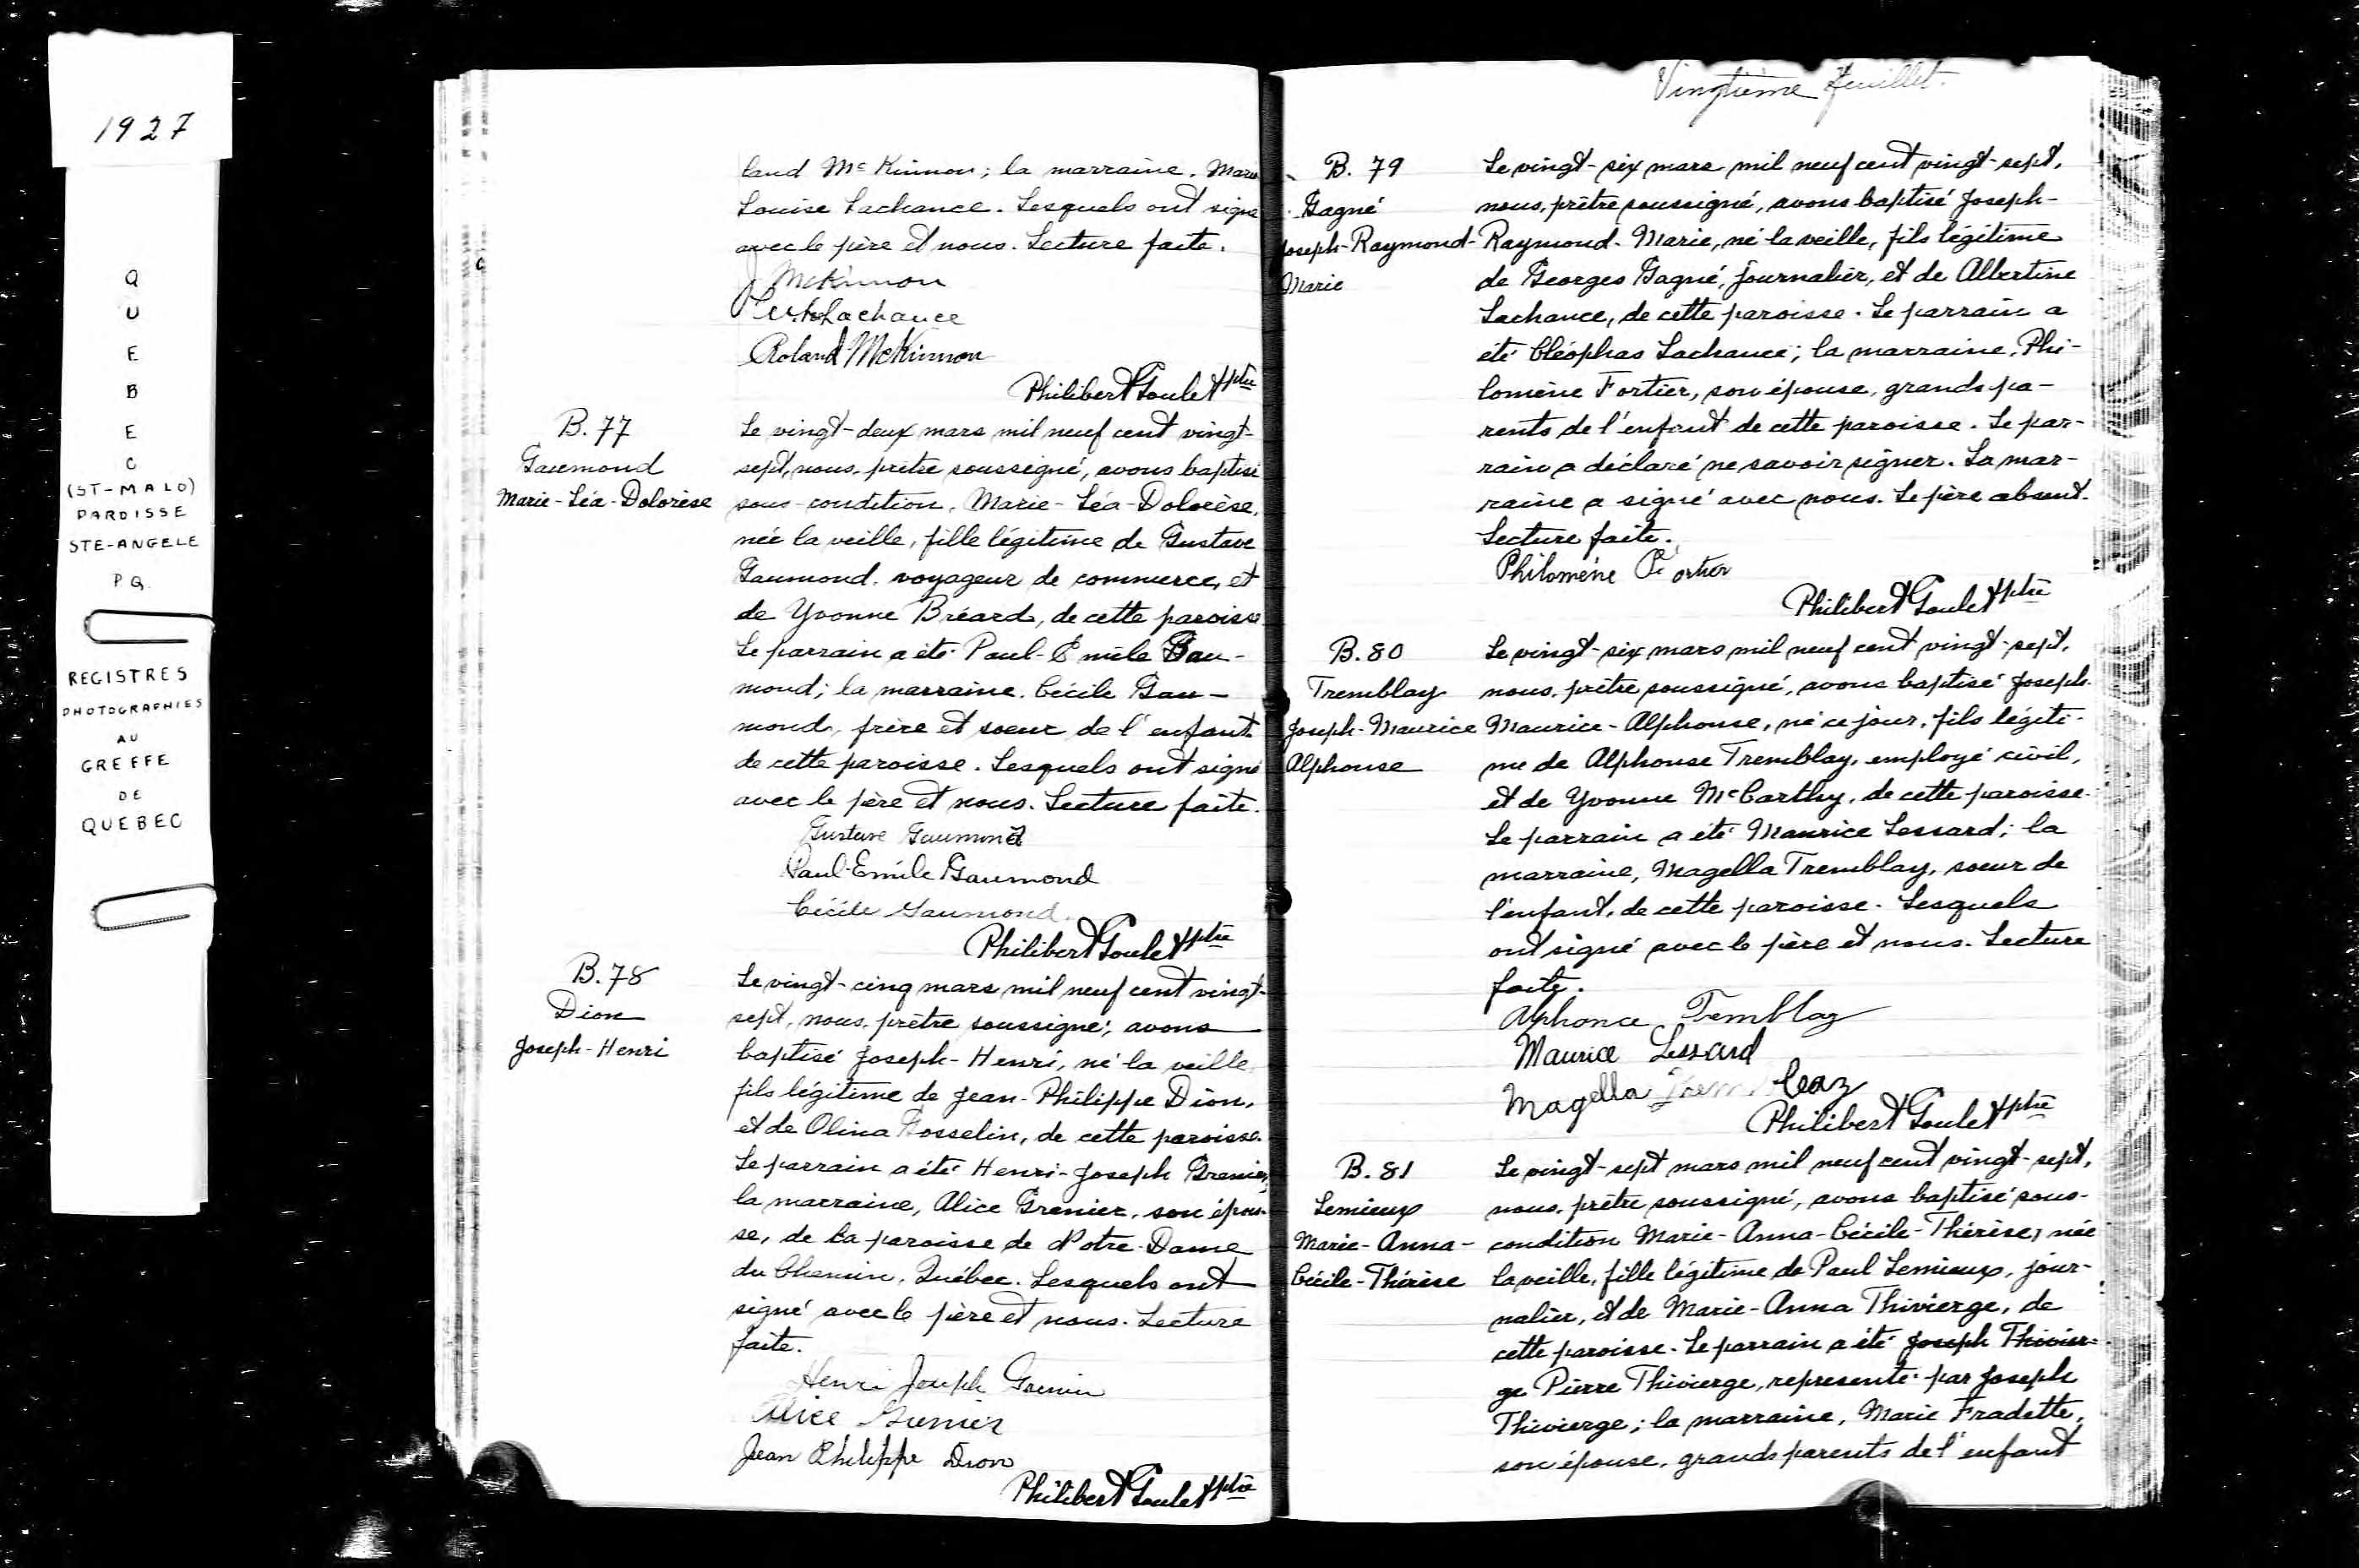 1927
QUEBEC
(ST-MALO)
PAROISSE
STE-ANGELE
P.Q.
REGISTRES
PHOTOGRAPHIES
AU
GREFFE
DE
QUEBEC
land McKinnon; la marraine, Marie
Louise Lachance. Lesquels ont signé
avec le père et nous. Lecture faite.
J McKinnon
Lachance
Roland McKinnon
Philibert Goulet ptre
B. 77
Gaumond
Marie-Léa-Dolorèse
Le vingt-deux mars mil neuf cent vingt-
sept, nous, prêtre soussigné, avons baptisé
sous-condition, Marie-Léa-Dolorèse,
née la veille, fille légitime de Gustave
Gaumond, voyageur de commerce, et
de Yvonne Bréard, de cette paroisse.
Le parrain a été Paul-Emile Gau-
mond; la marraine, Cécile Gau-
mond, frère et soeur de l'enfant
de cette paroisse. Lesquels ont signé
avec le père et nous. Lecture faite.
Gustave Gaumond
Paul-Emile Gaumond
Cécile Gaumond.
Philibert Goulet ptre
B. 78
Dion
Joseph-Henri
Le vingt-cinq mars mil neuf cent vingt-
sept, nous, prêtre soussigné, avons
baptisé Joseph-Henri, né la veille,
fils légitime de Jean-Philippe Dion,
et de Olina Gosselin, de cette paroisse.
Le parrain a été Henri-Joseph Grenier,
la marraine, Alice Grenier, son épou-
se, de la paroisse de Notre-Dame
du Chemin, Québec. Lesquels ont
signé avec le père et nous. Lecture
faite.
Henri Joseph Grenier
Alice Grenier
Jean Philippe Dion
Philibert Goulet ptre
Vingtième feuillet.
B. 79
Gagné
Joseph-Raymond-
Marie
Le vingt-six mars mil neuf cent vingt-sept,
nous, prêtre soussigné, avons baptisé Joseph-
Raymond-Marie, né la veille, fils légitime
de Georges Gagné, journalier, et de Albertine
Lachance, de cette paroisse. Le parrain a
été Cléophas Lachance; la marraine, Phi-
lomène Fortier, son épouse, grands pa-
rents de l'enfant de cette paroisse. Le par-
rain a déclaré ne savoir signer. La mar-
raine a signé avec nous. Le père absent.
Lecture faite.
Philomène Fortier
Philibert Goulet ptre
B. 80
Tremblay
Joseph-Maurice
Alphonse
Le vingt-six mars mil neuf cent vingt-sept,
nous, prêtre soussigné, avons baptisé Joseph-
Maurice-Alphonse, né ce jour, fils légiti-
me de Alphonse Tremblay, employé civil,
et de Yvonne McCarthy, de cette paroisse.
Le parrain a été Maurice Lessard; la
marraine, Magella Tremblay, soeur de
l'enfant, de cette paroisse. Lesquels
ont signé avec le père et nous. Lecture
faite.
Alphonce Tremblay
Maurice Lessard
Magella Tremblay
Philibert Goulet ptre
B. 81
Lemieux
Marie-Anna-
Cécile-Thérèse
Le vingt-sept mars mil neuf cent vingt-sept,
nous, prêtre soussigné, avons baptisé sous-
condition Marie-Anna-Cécile-Thérèse, née
la veille, fille légitime de Paul Lemieux, jour-
nalier, et de Marie-Anna Thivierge, de
cette paroisse. Le parrain a été Joseph Thivier-
ge Pierre Thivierge, représenté par Joseph
Thivierge; la marraine, Marie Fradette,
son épouse, grands parents de l'enfant